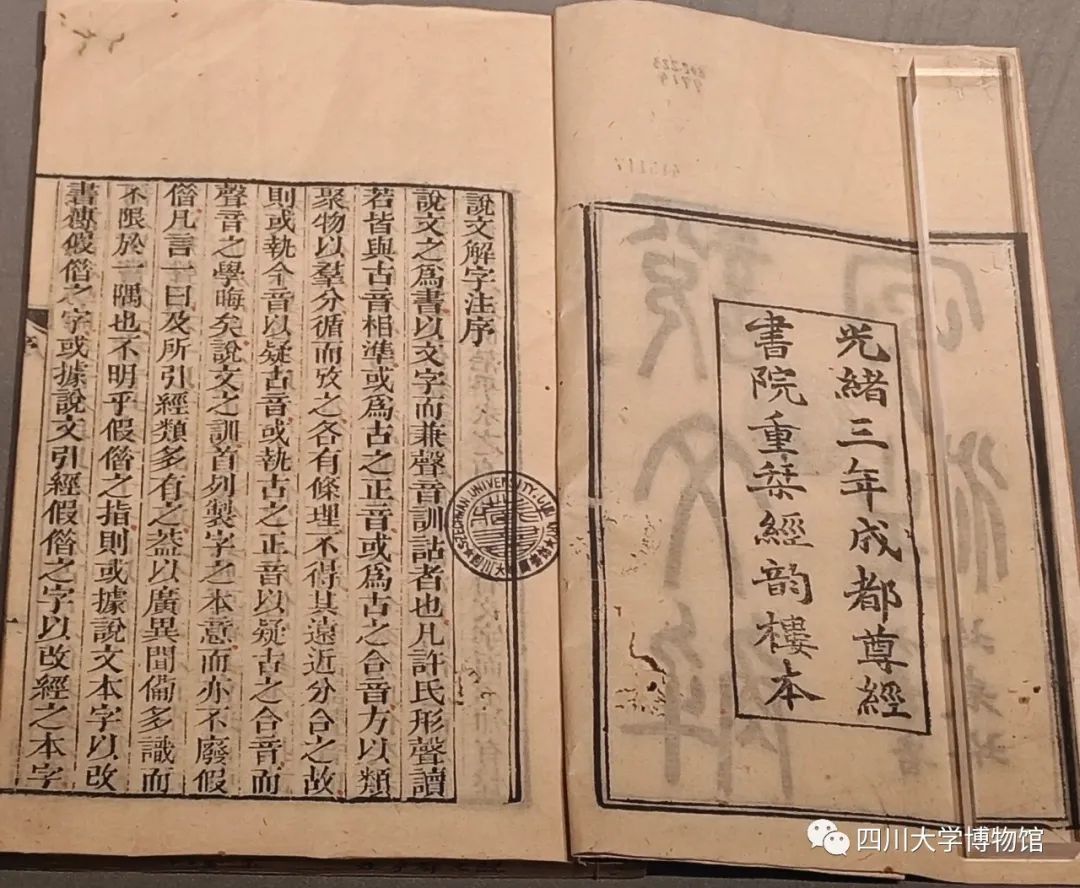 光緒三年成都尊經
書院重栞經韵樓本
說文解字注序
說文之爲書以文字而兼聲音訓詁者也凡許氏形聲讀
若皆與古音相準或爲古之正音或爲古之合音方以類
聚物以羣分循而攷之各有條理不得其遠近分合之故
則或執今音以疑古音或執古之正音以疑古之合音而
聲音之學晦矣說文之訓首列製字之本意而亦不廢假
借凡言一曰及所引經類多有之葢以廣異聞僃多識而
不限於一隅也不明乎假借之指則或據說文本字以改
書傳假借之字或據說文引經假借之字以改經之本字
序
UNIVERSITY
四川大学博物馆